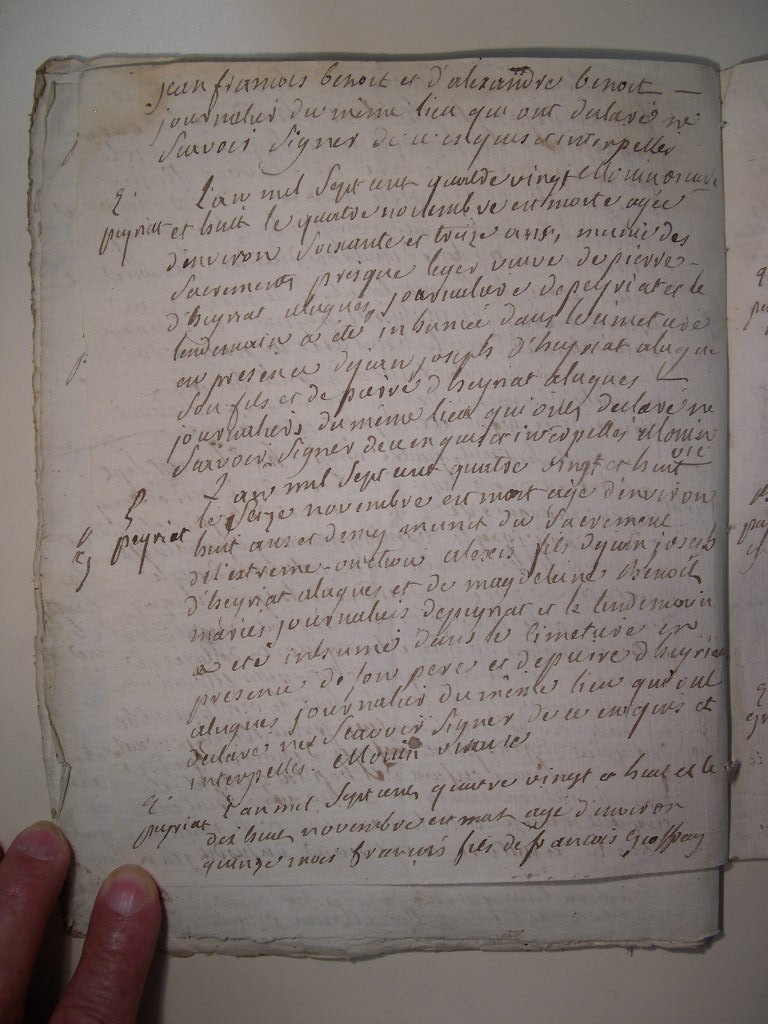 jean francois benoit et d'alexandre benoit
journalier du même lieu qui ont declaré ne
scavoir signer de ce enquis et interpelles
L'an mil sept cent quatre vingt
peyriat et huit le quatre novembre est morte agée
d'environ soixante et treize ans, munie des
sacrements presque leger veuve de pierre
d'heyriat alugues journaliere de peyriat et le
lendemain a été inhumée dans le cimetiere
en presence de jean joseph d'heyriat alugue
son fils et de pierre d'heyriat alugues
journaliers du même lieu qui ont declaré ne
scavoir signer de ce enquis et interpelles Monin
vic
L'an mil sept cent quatre vingt et huit
le seize novembre est mort agé d'environ
peyriat huit ans et demy munit du sacrement
de l'extreme-onction alexis fils de jean joseph
d'heyriat alugues et de magdelaine Benoit
mariés journaliers de peyriat et le lendemain
a eté inhumé dans le cimetiere en
presence de son pere et de pierre d'heyriat
alugues journalier du même lieu qui ont
declaré ne scavoir signer de ce enquis et
interpelles Monin vicaire
L'an mil sept cent quatre vingt et huit et le
peyriat dix huit novembre est mort agé d'environ
quinze mois francois fils de francois